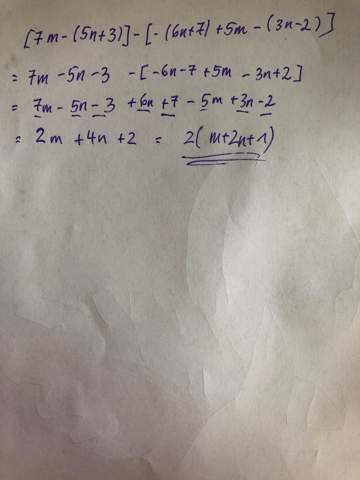 [7m-(5n+3)]-[-(6n+7)+5m-(3n-2)]
= 7m -5n -3 -[-6n-7+5m -3n+2]
= 7m - 5n - 3 +6n +7 - 5m +3n -2
= 2m +4n +2 = 2(m+2n+1)